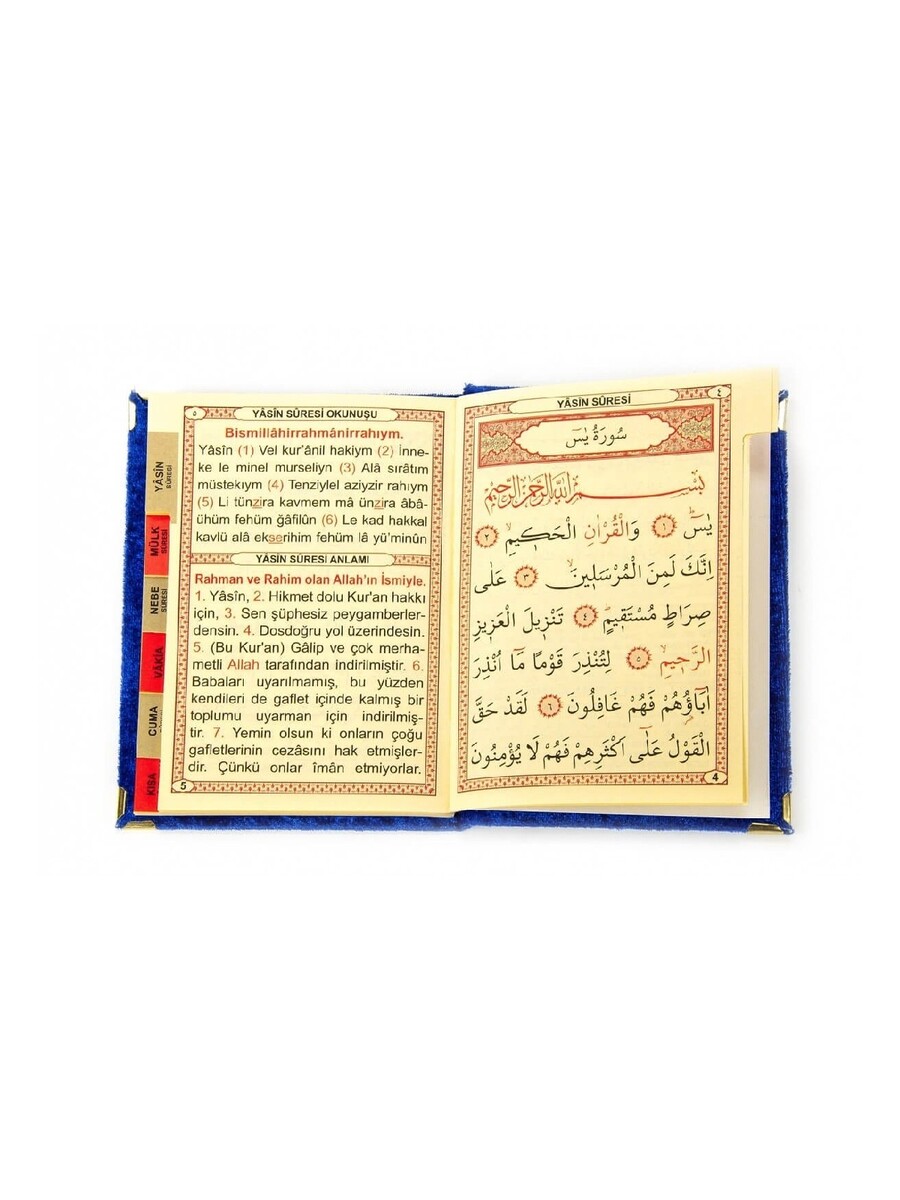 YÂSİN
SÛRESİ
MÜLK
SÛRESİ
NEBE
SÛRESİ
VÂKIA
CUMA
KISA
٥
YÂSİN SÛRESİ OKUNUŞU
Bismillâhirrahmânirrahıym.
Yâsîn (1) Vel kur'ânil hakiym (2) İnne-
ke le minel murseliyn (3) Alâ sırâtım
müstekıym (4) Tenziylel aziyzir rahıym
(5) Li tünzira kavmem mâ ünzira âbâ-
ühüm fehüm ğâfilûn (6) Le kad hakkal
kavlü alâ ekserihim fehüm lâ yü'minûn
YÂSİN SÛRESİ ANLAMI
Rahman ve Rahim olan Allah'ın İsmiyle.
1. Yâsîn, 2. Hikmet dolu Kur'an hakkı
için, 3. Sen şüphesiz peygamberler-
densin. 4. Dosdoğru yol üzerindesin.
5. (Bu Kur'an) Gâlip ve çok merha-
metli Allah tarafından indirilmiştir. 6.
Babaları uyarılmamış, bu yüzden
kendileri de gaflet içinde kalmış bir
toplumu uyarman için indirilmiş-
tir. 7. Yemin olsun ki onların çoğu
gafletlerinin cezâsını hak etmişler-
dir. Çünkü onlar îmân etmiyorlar.
5
٤
YÂSİN SÛRESİ
سُورَةُ يٰسٓ
بِسْمِ اللّٰهِ الرَّحْمٰنِ الرَّحِيمِ
يٰسٓ ۚ ﴿١﴾ وَالْقُرْاٰنِ الْحَك۪يمِۙ ﴿٢﴾
اِنَّكَ لَمِنَ الْمُرْسَل۪ينَۙ ﴿٣﴾ عَلٰى
صِرَاطٍ مُسْتَق۪يمٍۜ ﴿٤﴾ تَنْز۪يلَ الْعَز۪يزِ
الرَّح۪يمِۙ ﴿٥﴾ لِتُنْذِرَ قَوْمًا مَٓا اُنْذِرَ
اٰبَٓاؤُ۬هُمْ فَهُمْ غَافِلُونَ ﴿٦﴾ لَقَدْ حَقَّ
الْقَوْلُ عَلٰٓى اَكْثَرِهِمْ فَهُمْ لَا يُؤْمِنُونَ
4